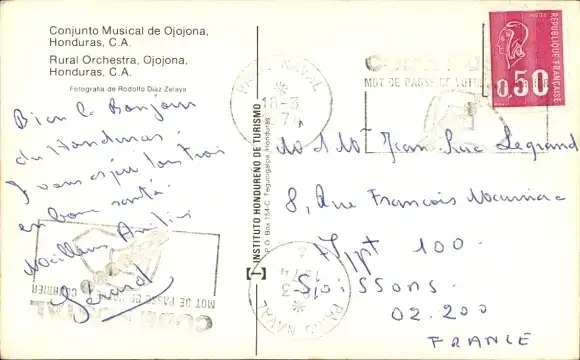 Conjunto Musical de Ojojona,
Honduras, C.A.
Rural Orchestra, Ojojona,
Honduras, C.A.
Fotografía de Rodolfo Díaz Zelaya
Bien le Bonjour
du Honduras.
J'vous espère tous trois
en bonne santé.
Meilleures Amitiés
Gérard
INSTITUTO HONDUREÑO DE TURISMO
P.O. Box 154-C Tegucigalpa, Honduras
PARIS NAVAL
18-3
CODE POSTAL
MOT DE PASSE DE VOTRE
REPUBLIQUE FRANÇAISE
0,50
M. & Mme Jean Luc Legrand
8, Rue François Mauriac
Appt 100.
Soissons.
02.200
FRANCE
PARIS NAVAL
18-3
CODE POSTAL
MOT DE PASSE DE VOTRE COURRIER